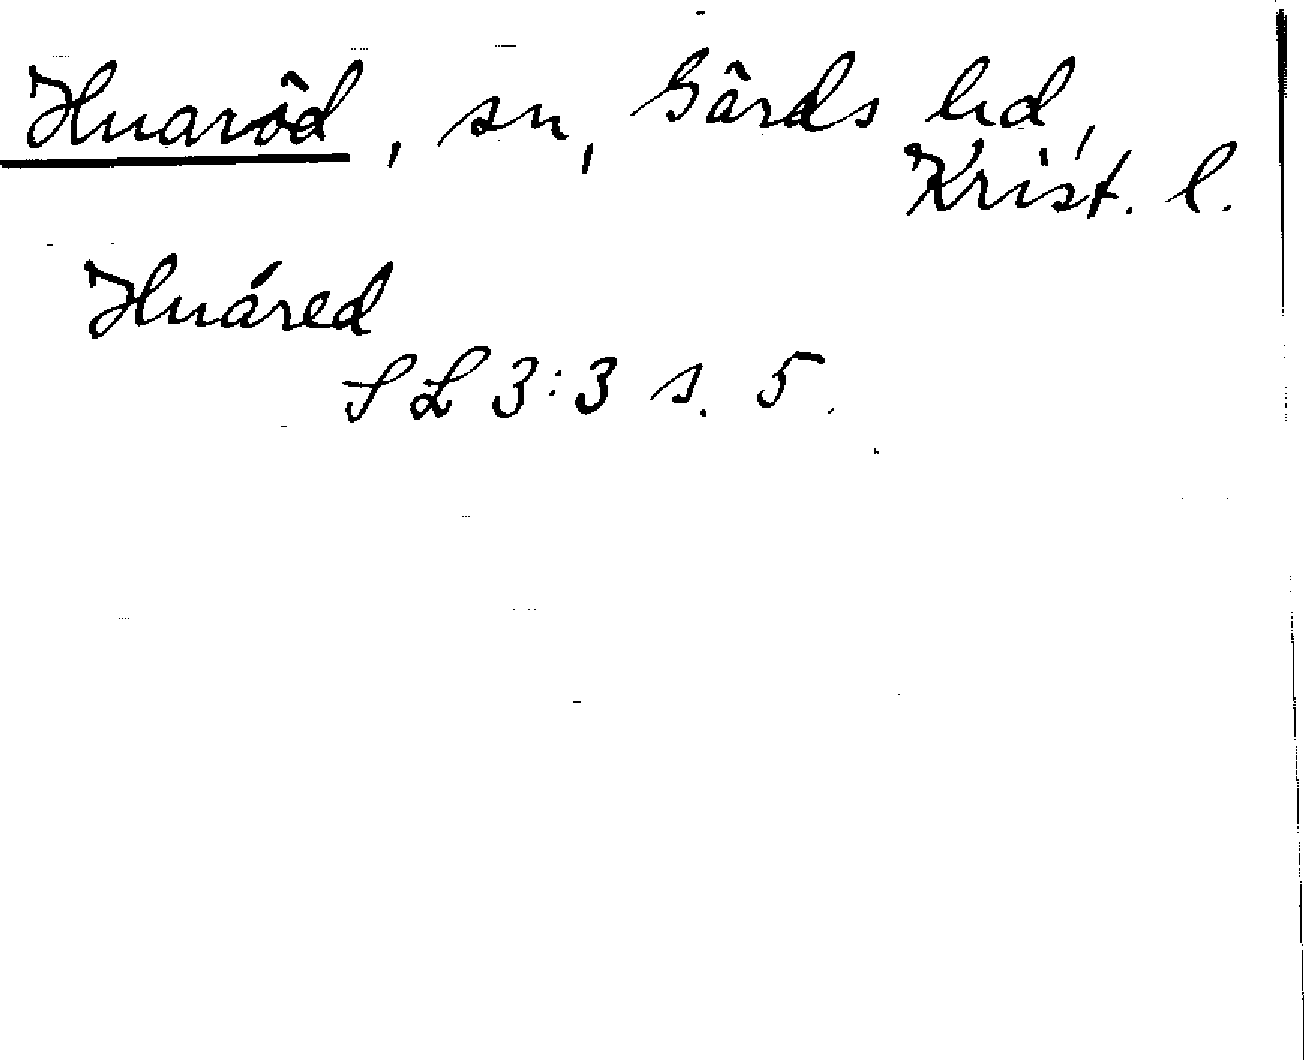 Huaröd, sn, Gärds hd,
Krist. l.
Huáred
SL 3:3 s. 5.